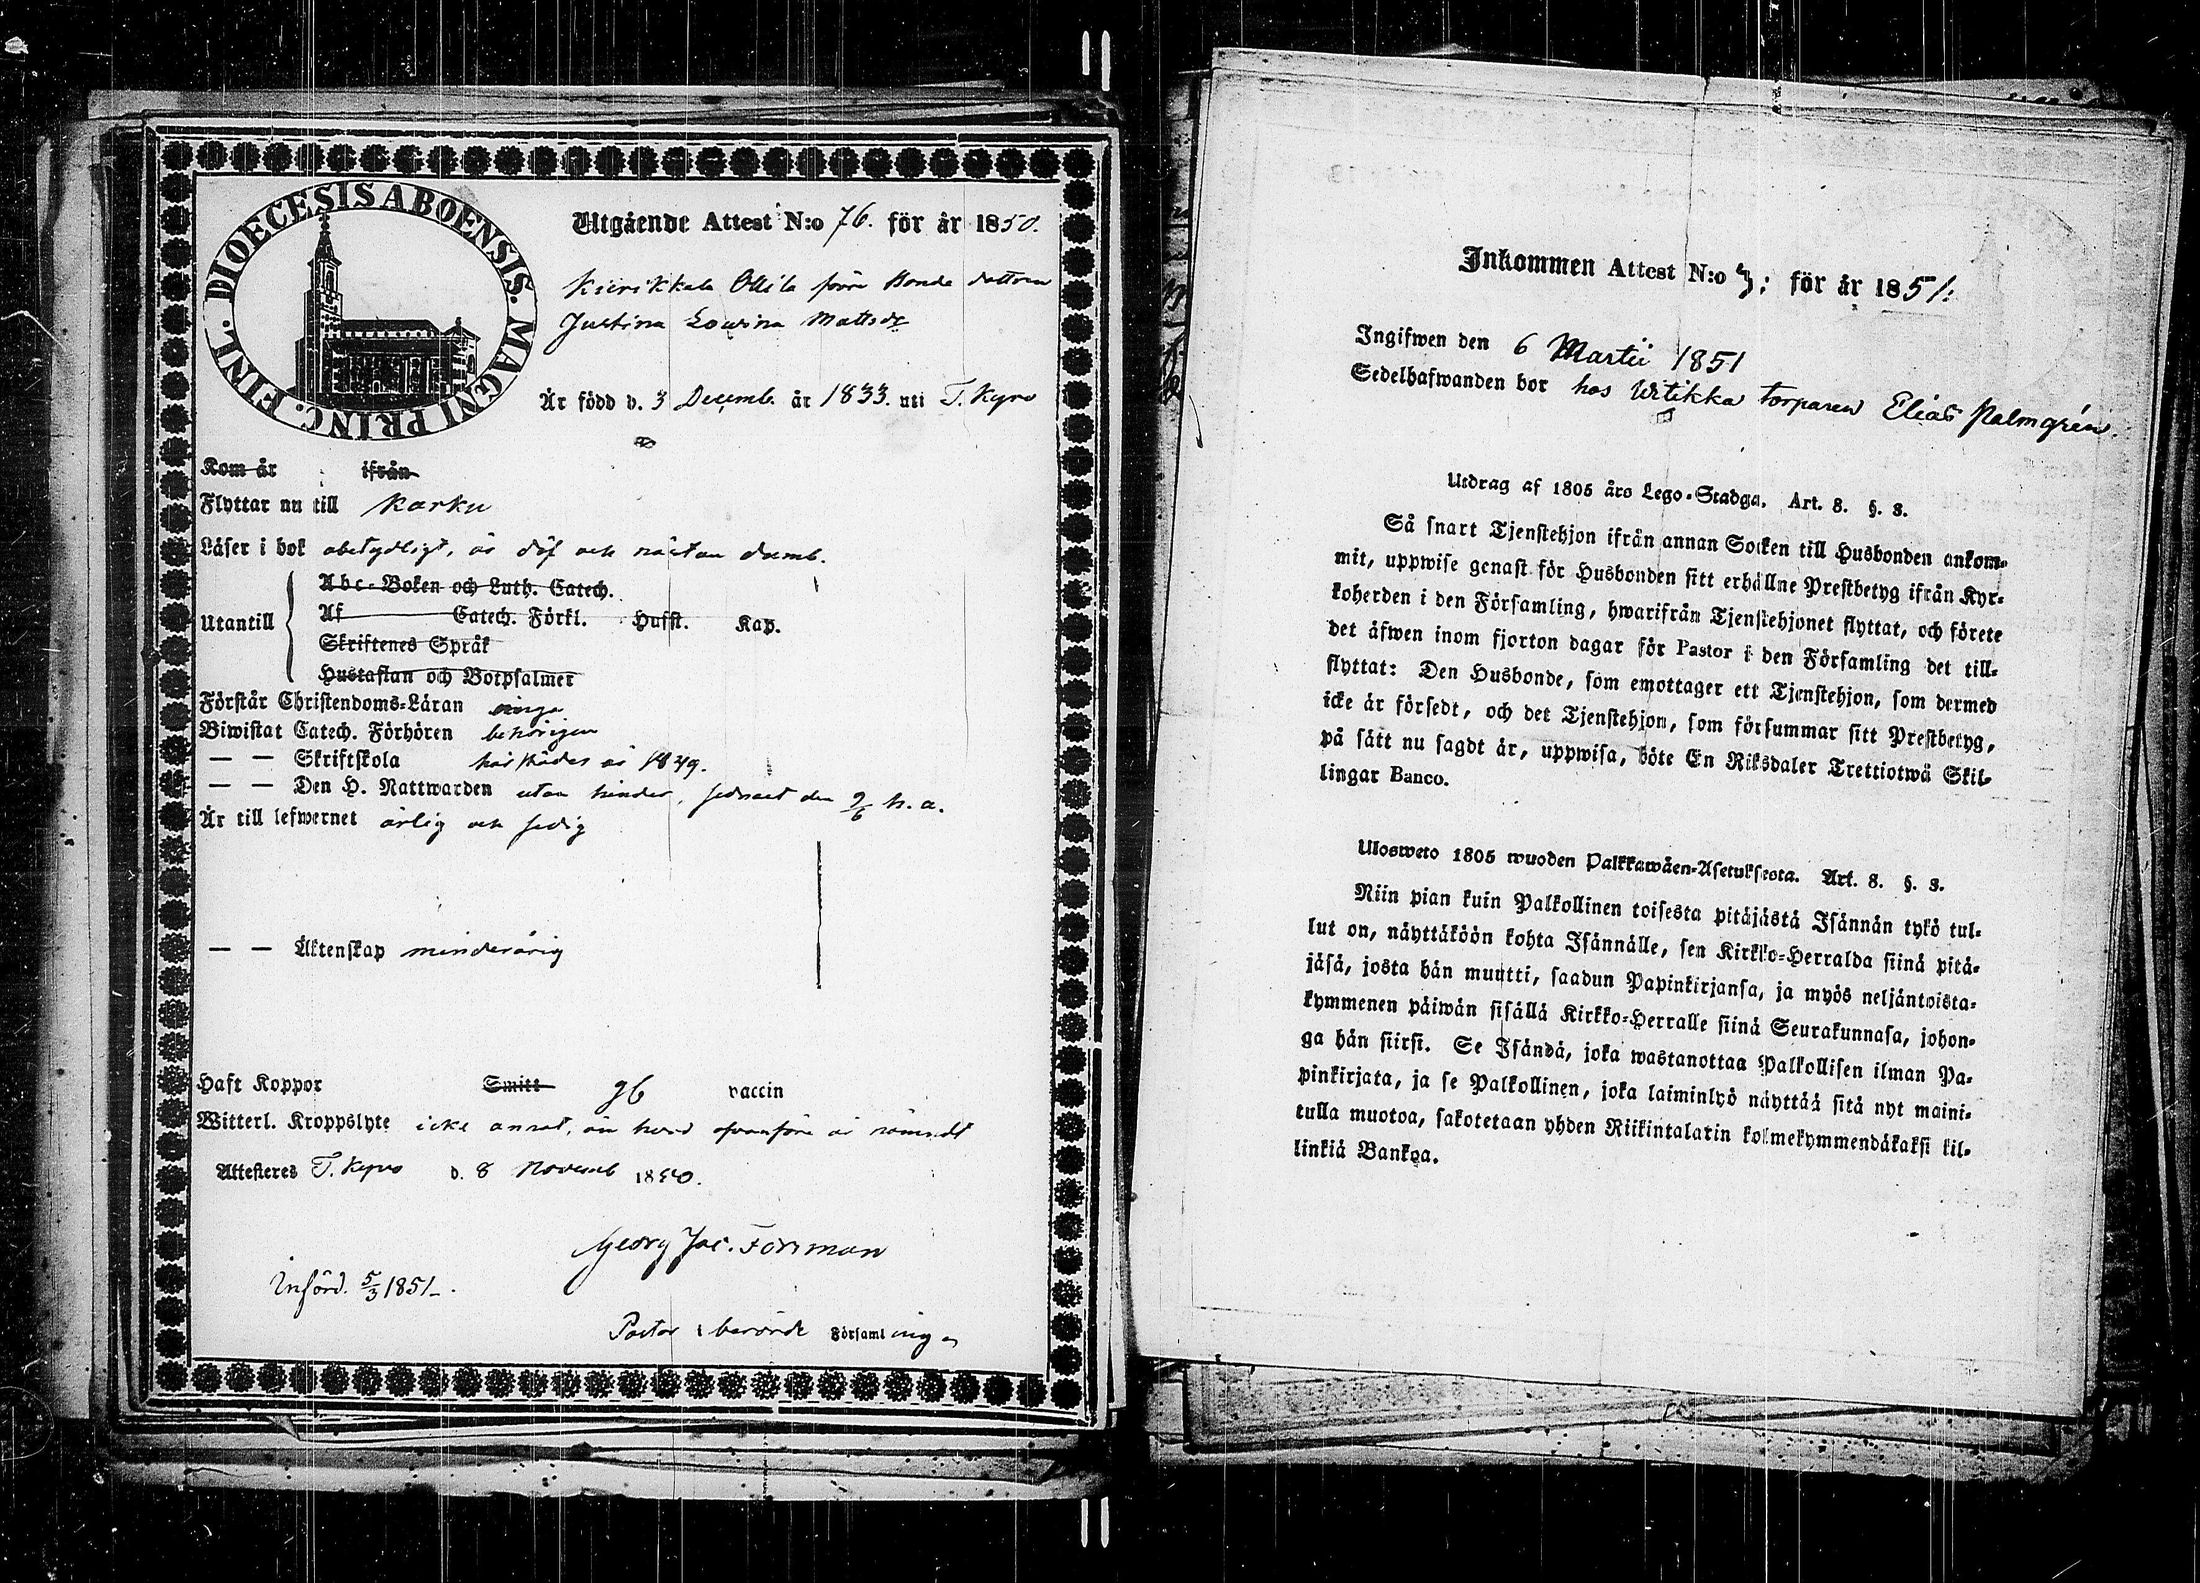 DIOECESIS ABOENSIS. MAGNI PRINC. FINL.
Utgående Attest N:o 76. för år 1850.
Kierikkala Ollila förra Bonde dottren
Justina Lovisa Mattsdr
Är född d. 3 Decemb. år 1833. uti T. Kyro
Kom år ifrån
Flyttar nu till Karku
Läser i bok obetydligt, är döf och nästan dumb.
Utantill
Abc-Boken och Luth. Catech.
Af Catech. Förkl. Husst. Kap.
Skriftenes Språk
Hustaflan och Botpsalmer
Förstår Christendoms-Läran ringa
Biwistat Catech. Förhören behörigen
— — Skriftskola härstädes år 1849.
— — Den H. Nattwarden utan hinder, sednast den 9/6 h. a.
Är till lefwernet ärlig och sedig
— — Äktenskap minderårig
Haft Koppor Smitt gb vaccin
Witterl. Kroppslyte icke annat, än hvad ofvanföre är nämndt
Attesteres T. Kyro d. 8 Novemb 1850.
Georg Jac. Forsman
Införd. 5/3 1851.
Pastor i berörde Församlingen
Inkommen Attest N:o för år 1851.
Ingifwen den 6 Martii 1851
Sedelhafwanden bor hos Witikka torparen Elias Palmgrén.
Utdrag af 1805 års Lego-Stadga. Art. 8. §. 3.
Så snart Tjenstehjon ifrån annan Socken till Husbonden ankom-
mit, uppwise genast för Husbonden sitt erhållne Prestbetyg ifrån Kyr-
koherden i den Församling, hwarifrån Tjenstehjonet flyttat, och förete
det äfwen inom fjorton dagar för Pastor i den Församling det till-
flyttat: Den Husbonde, som emottager ett Tjenstehjon, som dermed
icke är försedt, och det Tjenstehjon, som försummar sitt Prestbetyg,
på sätt nu sagdt är, uppwisa, böte En Riksdaler Trettiotwå Skil-
lingar Banco.
Ulosweto 1805 wuoden Palkkawäen-Asetuksesta. Art. 8. §. 3.
Niin pian kuin Palkollinen toisesta pitäjästä Isännän tykö tul-
lut on, näyttäköön kohta Isännälle, sen Kirkko-Herralda siinä pitä-
jäsä, josta hän muutti, saadun Papinkirjansa, ja myös neljäntoista-
kymmenen päiwän sisällä Kirkko-Herralle siinä Seurakunnasa, johon-
ga hän siirsi. Se Isändä, joka wastanottaa Palkollisen ilman Pa-
pinkirjata, ja se Palkollinen, joka laiminlyö näyttää sitä nyt maini-
tulla muotoa, sakotetaan yhden Riikintalarin kolmekymmendäkaksi kil-
linkiä Bankoa.